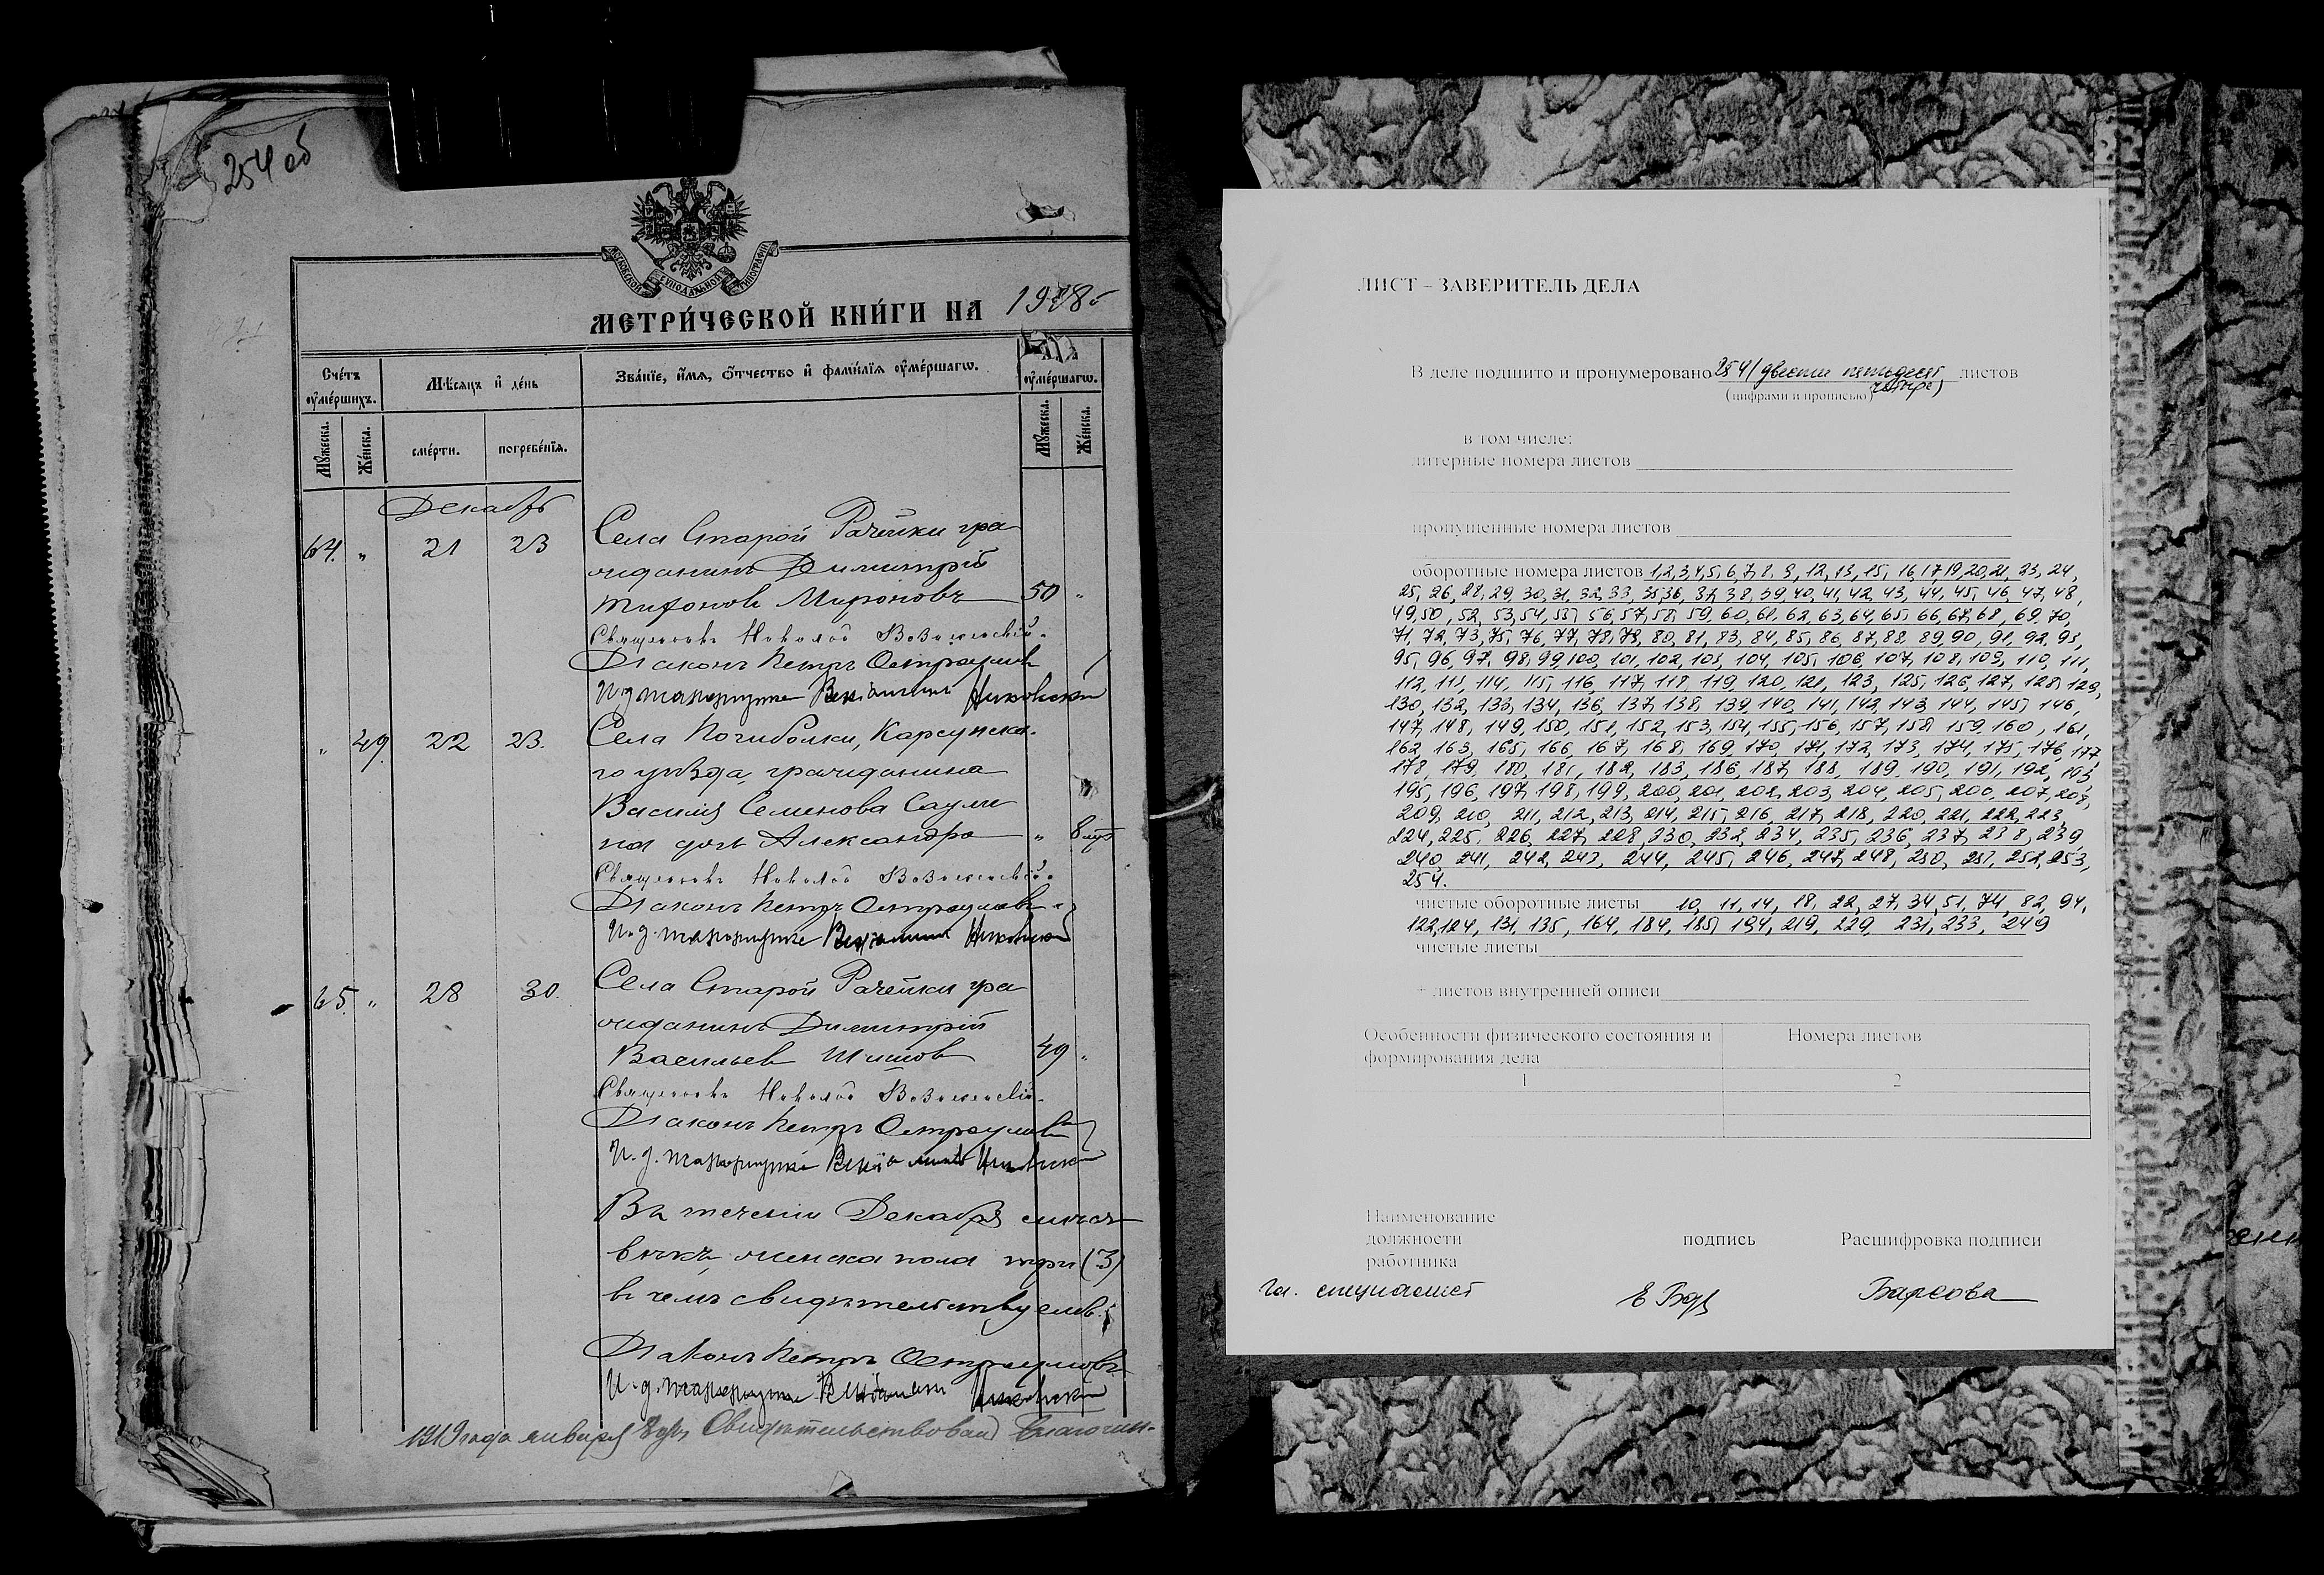 254 об
МОСКОВСКОЙ СѴНОДАЛЬНОЙ ТИПОГРАФІИ
МЕТРИ́ЧЕСКОЙ КНИ́ГИ НА 1918
Сче́тъ ᲂу҆ме́ршихъ.
Мꙋ́жеска.
Же́нска.
Мѣ́сяцъ и҆ де́нь
сме́рти.
погребе́нїѧ.
Зва́нїе, и҆́мѧ, ѻ҆́тчество и҆ фамі́лїѧ ᲂу҆ме́ршагѡ.
ᲂу҆ме́ршагѡ.
Мꙋ́жеска.
Же́нска.
Декабрь
64. " 21 23 Села Старой Рачейки гра
жданинъ Димитрій
Тихоновъ Мироновъ 50 "
Священникъ Николай Вознесенскій.
Діаконъ Петръ Остроумовъ
И.д. псаломщика Веніаминъ
" 49. 22 23. Села Погиболки, Карсунска-
го уѣзда, гражданина
Василія Семенова Саули
на дочь Александра " 8
Священникъ Николай Вознесенскій.
Діаконъ Петръ Остроумовъ
И.д. псаломщика Веніаминъ
65. " 28 30. Села Старой Рачейки гра
жданинъ Димитрій
Васильевъ Шишов 49 "
Священникъ Николай Вознесенскій.
Діаконъ Петръ Остроумовъ
И.д. псаломщика Веніаминъ
Въ теченіи Декабря
женска пола три (3)
въ чемъ свидѣтельствуемъ:
Діаконъ Петръ Остроумовъ
И.д. псаломщика Веніаминъ
1919 года января Свидѣтельствовалъ Благочин-
ЛИСТ – ЗАВЕРИТЕЛЬ ДЕЛА
В деле подшито и пронумеровано 254 (двести пятьдесят четыре) листов
(цифрами и прописью)
в том числе:
литерные номера листов
пропущенные номера листов
оборотные номера листов 1,2,3,4,5,6,7,8,9,12,13,15,16,17,19,20,21,23,24,
25,26,28,29,30,31,32,33,35,36,37,38,39,40,41,42,43,44,45,46,47,48,
49,50,52,53,54,55,56,57,58,59,60,61,62,63,64,65,66,67,68,69,70,
71,72,73,75,76,77,78,79,80,81,83,84,85,86,87,88,89,90,91,92,93,
95,96,97,98,99,100,101,102,103,104,105,106,107,108,109,110,111,
112,113,114,115,116,117,118,119,120,121,123,125,126,127,128,129,
130,132,133,134,136,137,138,139,140,141,142,143,144,145,146,
147,148,149,150,151,152,153,154,155,156,157,158,159,160,161,
162,163,165,166,167,168,169,170,171,172,173,174,175,176,177
178,179,180,181,182,183,186,187,188,189,190,191,192,193
195,196,197,198,199,200,201,202,203,204,205,206,207,208,
209,210,211,212,213,214,215,216,217,218,220,221,222,223,
224,225,226,227,228,230,232,234,235,236,237,238,239,
240,241,242,243,244,245,246,247,248,250,251,252,253,
254.
чистые оборотные листы 10,11,14,18,22,27,34,51,74,82,94,
122,124,131,135,164,184,185,194,219,229,231,233,249
чистые листы
+ листов внутренней описи
Особенности физического состояния и формирования дела
Номера листов
1 2
Наименование
должности
работника
подпись
Расшифровка подписи
гл. специалист
Барсова